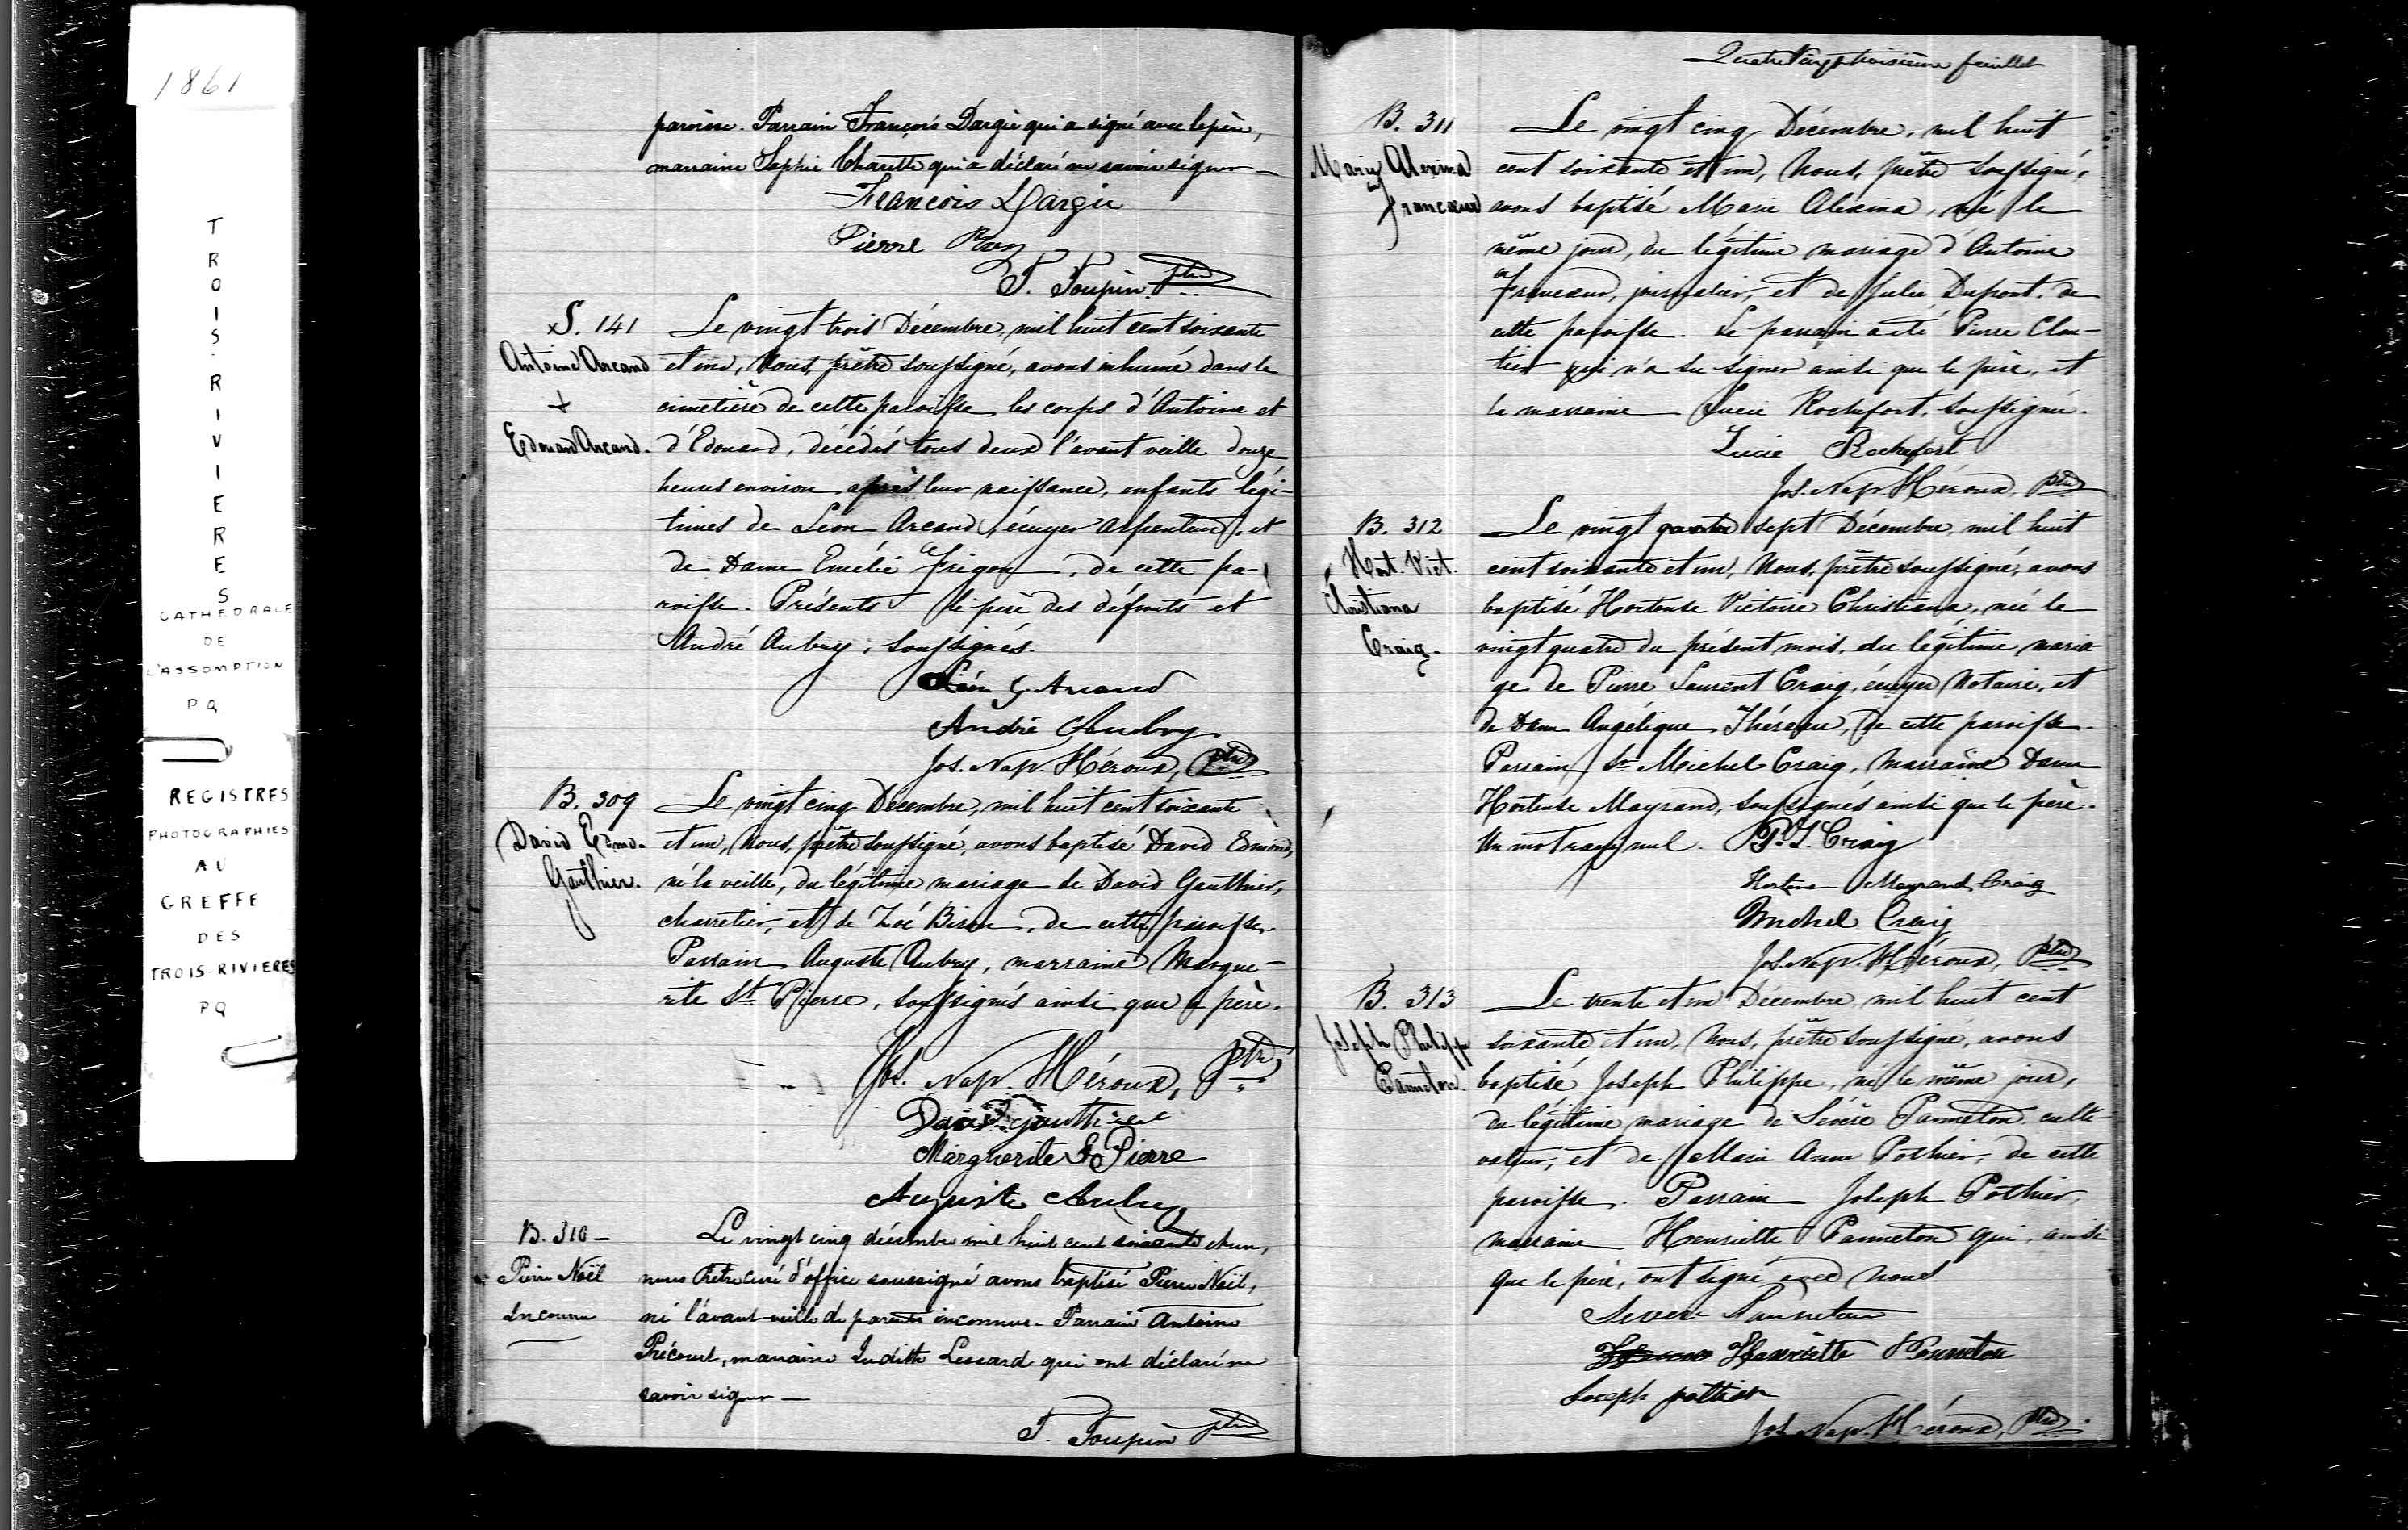 1861
TROIS-RIVIERES
CATHEDRALE
DE
L'ASSOMPTION
PQ
REGISTRES
PHOTOGRAPHIES
AU
GREFFE
DES
TROIS-RIVIERES
PQ
paroisse. Parrain François Dargis qui a signé avec le père,
marraine Sophie Charette qui a déclaré ne savoir signer —
François Dargis
Pierre
T. Toupin Ptre
S. 141
Antoine Arcand
+
Edouard Arcand.
Le vingt trois Décembre, mil huit cent soixante
et un, Nous, prêtre soussigné, avons inhumé dans le
cimetière de cette paroisse les corps d'Antoine et
d'Edouard, décédés tous deux l'avant veille douze
heures environ après leur naissance, enfants légi-
times de Léon Arcand, écuyer Arpenteur, et
de Dame Emélie Frigon, de cette pa-
roisse. Présents le père des défunts et
André Aubry, soussignés.
Léon G. Arcand
André Aubry
Jos. Nap. Héroux, Ptre
B. 309
David Edmo.
Gauthier.
Le vingt cinq Décembre, mil huit cent soixante
et un, Nous, prêtre soussigné, avons baptisé David Edmond,
né la veille, du légitime mariage de David Gauthier,
charretier, et de Zoé Biron, de cette paroisse.
Parrain Auguste Aubry, marraine Margue-
rite St Pierre, soussignés ainsi que le père.
Jos. Nap. Héroux, Ptre
David gauthier
Marguerite St Pierre
Auguste Aubry
B. 310 —
Pierre Noël
Inconnu
Le vingt cinq décembre mil huit cent soixante et un,
nous Prêtre curé d'office soussigné avons baptisé Pierre Noël,
né l'avant-veille de parents inconnus. Parrain Antoine
Précourt, marraine Judith Lessard qui ont déclaré ne
savoir signer —
T. Toupin Ptre
Quatre Vingt troisième feuillet
B. 311
Marie Alexina
Francoeur
Le vingt cinq Décembre, mil huit
cent soixante et un, Nous, prêtre soussigné,
avons baptisé Marie Alexina, née le
même jour, du légitime mariage d'Antoine
Francoeur, journalier, et de Julie Dupont, de
cette paroisse. Le parrain a été Pierre Clou-
tier qui n'a su signer ainsi que le père, et
la marraine Lucie Rochefort, soussignée.
Lucie Rochefort
Jos. Nap. Héroux, Ptre
B. 312
Hort. Vict.
Christiana
Craig.
Le vingt quatre sept Décembre, mil huit
cent soixante et un, Nous, prêtre soussigné, avons
baptisé Hortense Victoire Christiana, née le
vingt quatre du présent mois, du légitime maria-
ge de Pierre Laurent Craig, écuyer Notaire, et
de Dame Angélique Théreau, de cette paroisse.
Parrain Sr Michel Craig, marraine Dame
Hortense Mayrand, soussignés ainsi que le père.
Un mot rayé nul. P. L. Craig
Hortense Mayrand Craig
Michel Craig
Jos. Nap. Héroux, Ptre
B. 313
Joseph Philippe
Panneton
Le trente et un Décembre, mil huit cent
soixante et un, Nous, prêtre soussigné, avons
baptisé Joseph Philippe, né le même jour,
du légitime mariage de Sévère Panneton culti-
vateur, et de Marie Anne Pothier, de cette
paroisse. Parrain Joseph Pothier,
marraine Henriette Panneton qui, ainsi
que le père, ont signé avec nous
Severe Panneton
Henriette Panneton
Joseph pothier
Jos. Nap. Héroux, Ptre.